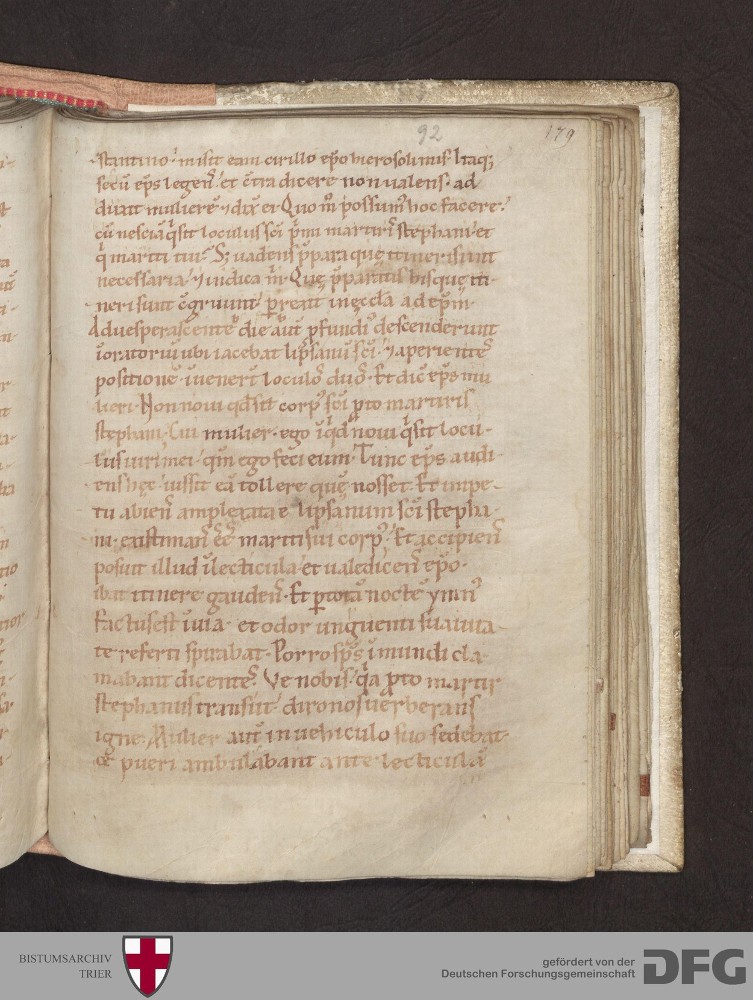 92 179
stantino. misit eam cirillo ep̄o hierosolimis. Itaq;
secū ep̄s legen̄. et c̄tra dicere non ualens. ad
duxit muliere. & dix̄ ei. Quo m̊ possum hoc facere.
cū nesciā q̇ sit loculus sc̄i p̄mi martiris stephani. et
q̇ mariti tui. S; uadens p̄para quę itineri sunt
necessaria. & indica m̄. Quę p̄paratis bisquę iti
neri sunt c̄gruunt. ad ep̄m.
Aduesperascente die aut̄ p̄fundi descenderunt
ī oratoriū ubi iacebat lipsanū sc̄i. & aperientes
positionē. īuener̄t loculos duos. Et dic̄ ep̄s mu
lieri. Non noui qd̄ sit corp sc̄i p̄to martiris
stephani. Cui mulier. ego īqd noui q̇ sit locu
lus uiri mei. qm̄ ego feci eum. Tunc ep̄s audi
ens hęc. iussit eā tollere quę nosset. Et impe
tu abien̄ amplexata ē lipsanum sc̄i stepha
ni. existiman̄ ēē mariti sui corp. Et accipien̄
posuit illud ī lecticula. et ualedicen̄ ep̄o.
ibat itinere gauden̄. Et p totā noctē ymn
factus est ī uia. et odor unguenti suauita
te referti spirabat. Porro sp̄s īmundi cla
mabant dicentes. Ve nobis. q̇a p̄to martir
stephanus transiit. diro nos uerberans
igne. Mulier aut̄ in uehiculo suo sedebat.
& pueri ambulabant ante lecticulā
BISTUMSARCHIV
TRIER
gefördert von der
Deutschen Forschungsgemeinschaft
DFG